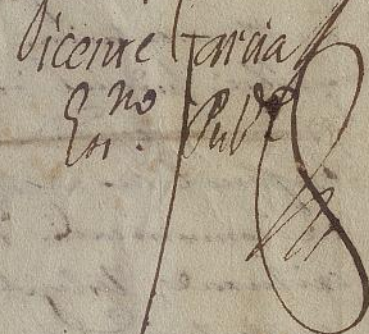 Vicente Garcia
Es.no Pub.co